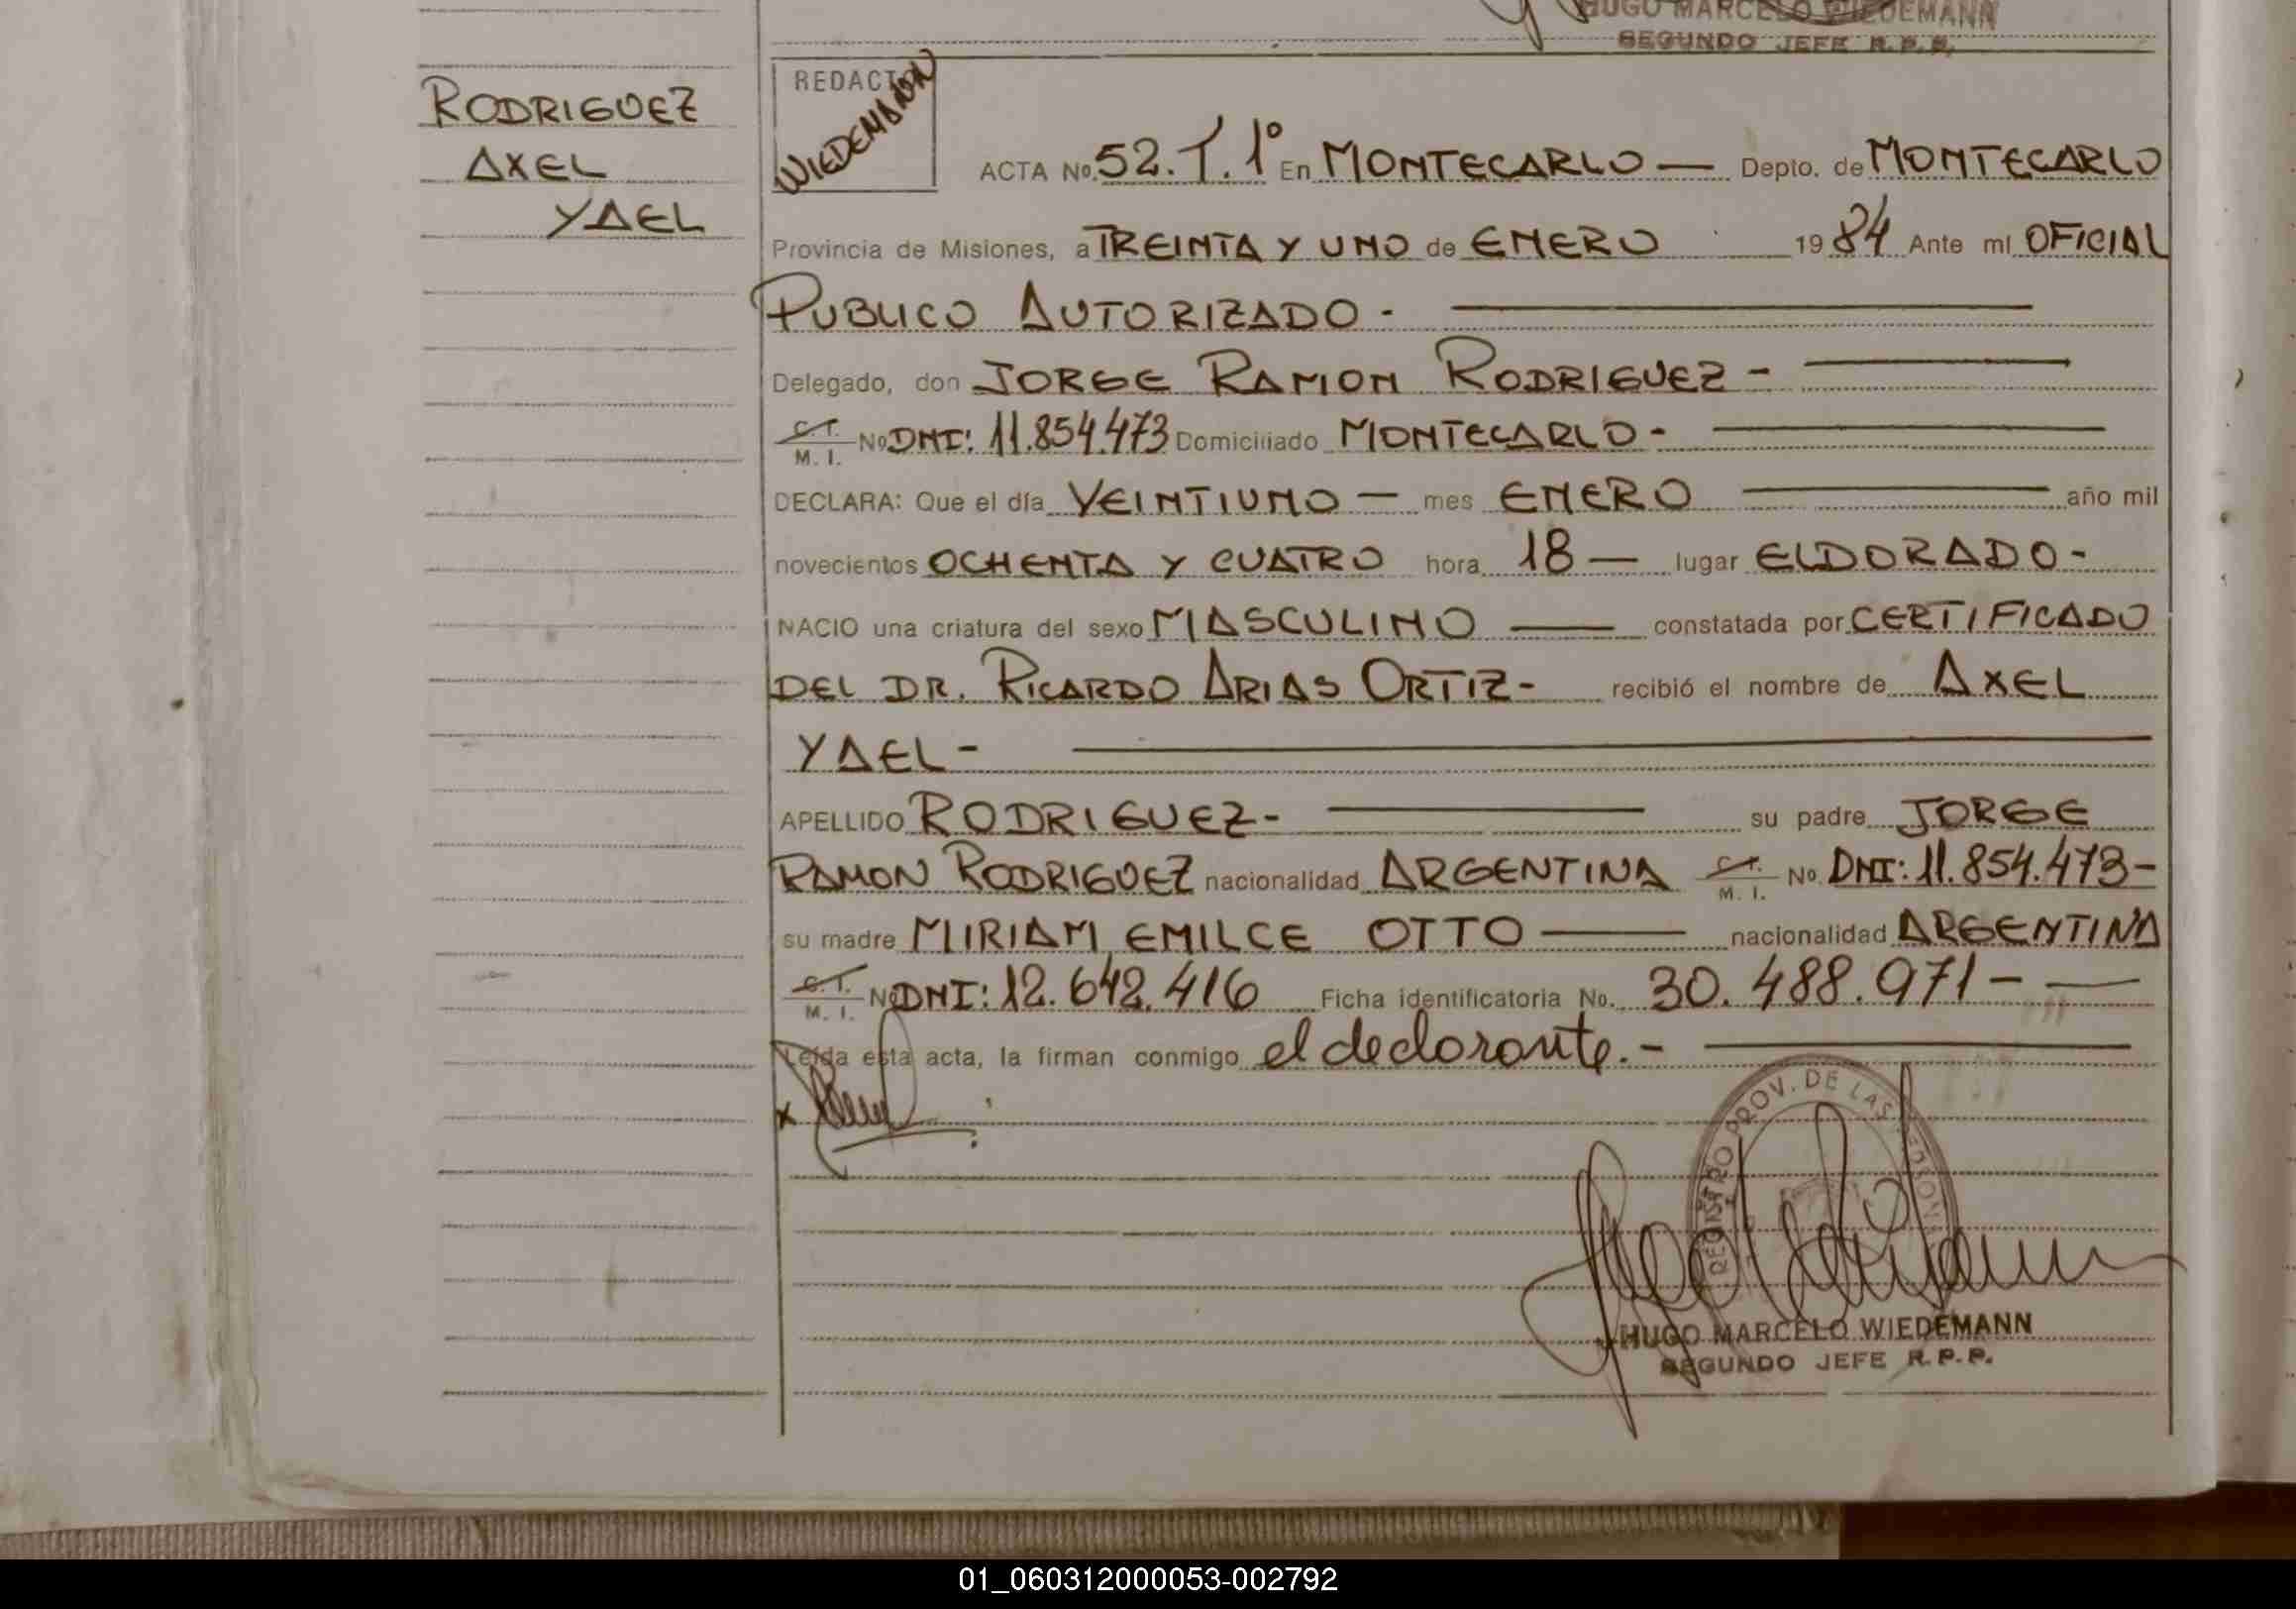 HUGO MARCELO WIEDEMANN
SEGUNDO JEFE R.P.P.
RODRIGUEZ
AXEL
YAEL
REDACTO
WIEDEMANN
ACTA No. 52. T. 1º En MONTECARLO — Depto. de MONTECARLO
Provincia de Misiones, a TREINTA Y UNO de ENERO 19 84 Ante mI OFICIAL
PUBLICO AUTORIZADO -
Delegado, don JORGE RAMON RODRIGUEZ -
C. I. / M. I. No DNI: 11.854.473 Domiciliado MONTECARLO -
DECLARA: Que el día VEINTIUNO — mes ENERO — año mil
novecientos OCHENTA Y CUATRO hora 18 — lugar ELDORADO -
NACIO una criatura del sexo MASCULINO — constatada por CERTIFICADO
DEL DR. RICARDO ARIAS ORTIZ - recibió el nombre de AXEL
YAEL -
APELLIDO RODRIGUEZ - su padre JORGE
RAMON RODRIGUEZ nacionalidad ARGENTINA C. I. / M. I. No. DNI: 11.854.473 -
su madre MIRIAM EMILCE OTTO — nacionalidad ARGENTINA
C. I. / M. I. No DNI: 12.642.416 Ficha identificatoria No. 30.488.971 - —
Leída esta acta, la firman conmigo el declarante. -
x
REGISTRO PROV. DE LAS PERSONAS
HUGO MARCELO WIEDEMANN
SEGUNDO JEFE R.P.P.
01_060312000053-002792